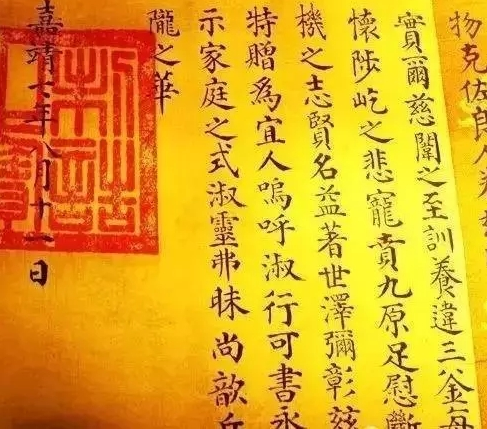 物克佐郎
實爾慈闈之至訓養違三釜每
懷陟屺之悲寵賁九原足慰斷
機之志賢名益著世澤彌彰茲
特贈爲宜人嗚呼淑行可書永
示家庭之式淑靈弗昧尚歆丘
隴之華
嘉靖年八月十一日
制誥